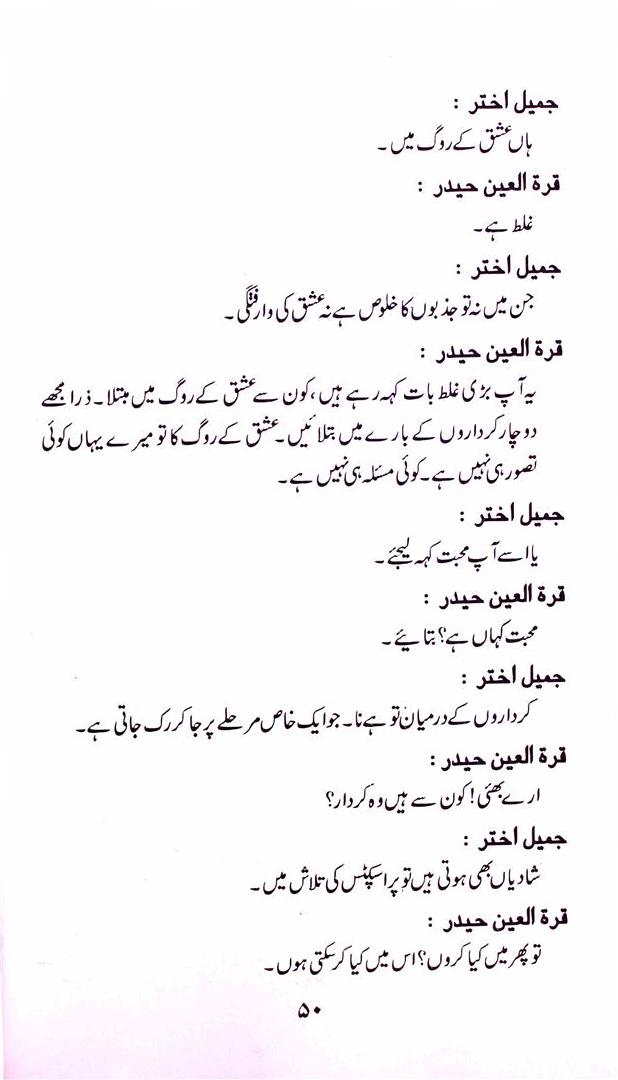 جمیل اختر :
ہاں عشق کے روگ میں ۔
قرۃ العین حیدر :
غلط ہے۔
جمیل اختر :
جن میں نہ تو جذبوں کا خلوص ہے نہ عشق کی وارفتگی ۔
قرۃ العین حیدر :
یہ آپ بڑی غلط بات کہہ رہے ہیں ،کون سے عشق کے روگ میں مبتلا ۔ ذرا مجھے
دو چار کرداروں کے بارے میں بتلائیں۔ عشق کے روگ کا تو میرے یہاں کوئی
تصور ہی نہیں ہے ۔ کوئی مسئلہ ہی نہیں ہے ۔
جمیل اختر :
یا اسے آپ محبت کہہ لیجئے ۔
قرۃ العین حیدر :
محبت کہاں ہے؟ بتایئے ۔
جمیل اختر :
کرداروں کے درمیان تو ہے نا ۔ جو ایک خاص مرحلے پر جا کر رک جاتی ہے۔
قرۃ العین حیدر :
ارے بھئی! کون سے ہیں وہ کردار؟
جمیل اختر :
شادیاں بھی ہوتی ہیں تو پراسپکٹس کی تلاش میں ۔
قرۃ العین حیدر :
تو پھر میں کیا کروں؟ اس میں کیا کر سکتی ہوں ۔
۵۰